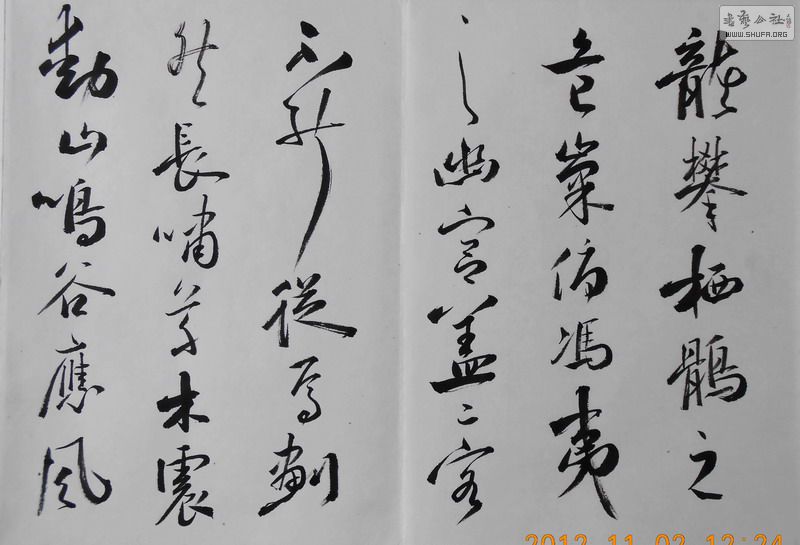 龍攀栖鶻之
危巢俯馮夷
之幽宮盖二客
不能從焉劃
然長嘯草木震
動山鳴谷應風
書藝公社
WWW.SHUFA.ORG
2012 11 02 12:24